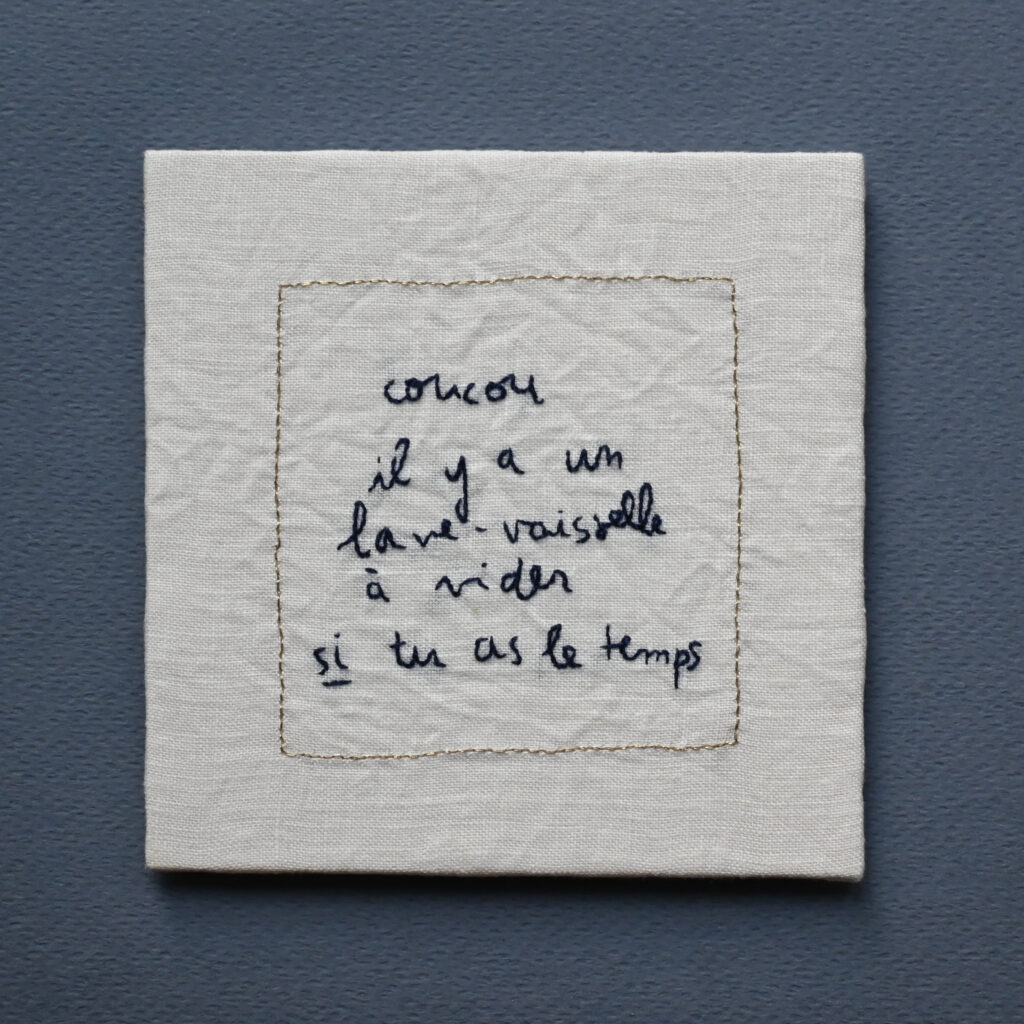 coucou
il y a un
lave-vaisselle
à vider
si tu as le temps